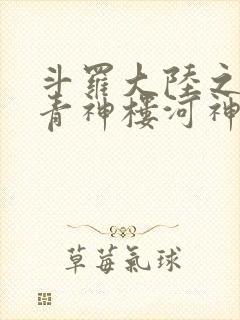 斗羅大陸之
青神樓河神
草莓氣球